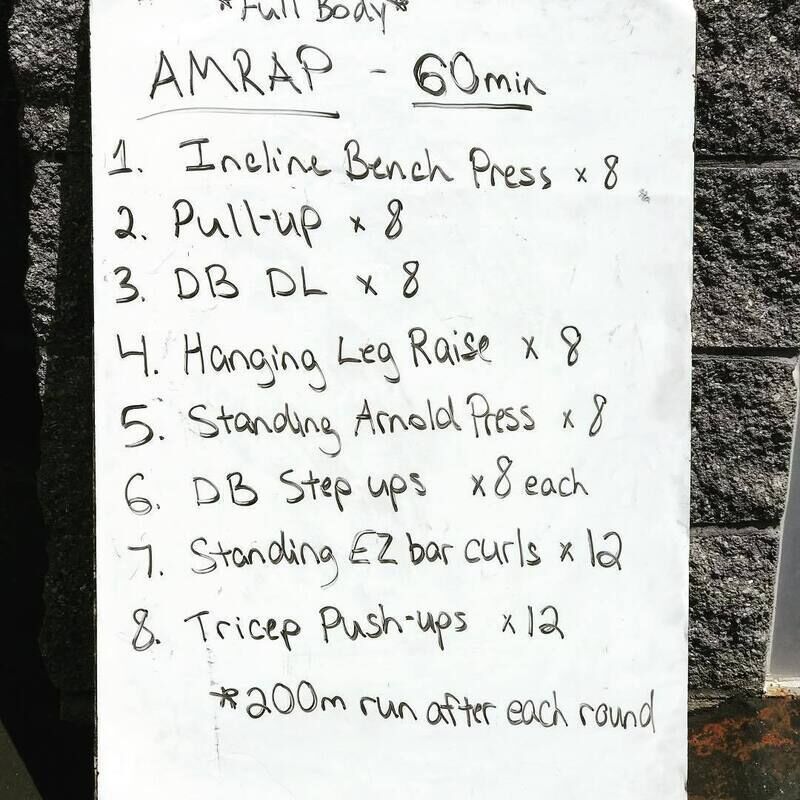 *Full Body*
AMRAP - 60min
1. Incline Bench Press x 8
2. Pull-up x 8
3. DB DL x 8
4. Hanging Leg Raise x 8
5. Standing Arnold Press x 8
6. DB Step ups x8 each
7. Standing EZ bar curls x 12
8. Tricep Push-ups x 12
*200m run after each round